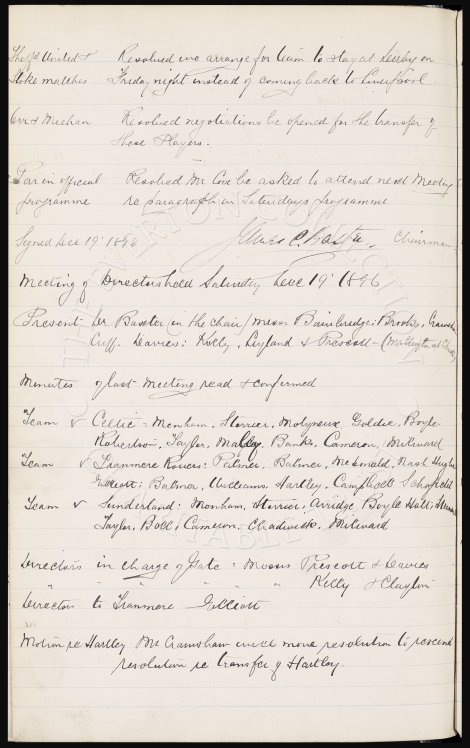 Sheffd United & Resolved we arrange for team to stay at Derby on
Stoke matches Friday night instead of coming back to Liverpool
Orr & Meehan Resolved negotiations be opened for the transfer of
these Players.
Par in official Resolved Mr Cox be asked to attend next Meeting
programme re paragraph in Saturdays programme
Signed Dec 19 1896 James C. Baxter, Chairman
Meeting of Directors held Saturday Dece 19' 1896
Present Dr Baxter in the chair / Messrs Bainbridge:
Cuff. Davies: Kelly, Leyland & Prescott -
Minutes of last Meeting read & confirmed
Team v Celtic = Menham, Storrier, Molyneux, Goldie, Boyle
Robertson, Taylor, Banks, Cameron, Milward
Team v Tranmere Rovers: Palmer, Balmer, McDonald, Nash Hughes
Elliott: Balmer, Williams, Hartley, Campbell Schofield
Team v Sunderland: Menham, Storrier, Arridge, Boyle Holt:
Taylor, Bell, Cameron, Chadwick, Milward
Directors in charge of Gate: Messrs Prescott & Davies
" " " " " Kelly & Clayton
Director to Tranmere Elliott
Motion re Hartley Mr Cramshaw will move resolution to rescind
resolution re transfer of Hartley.